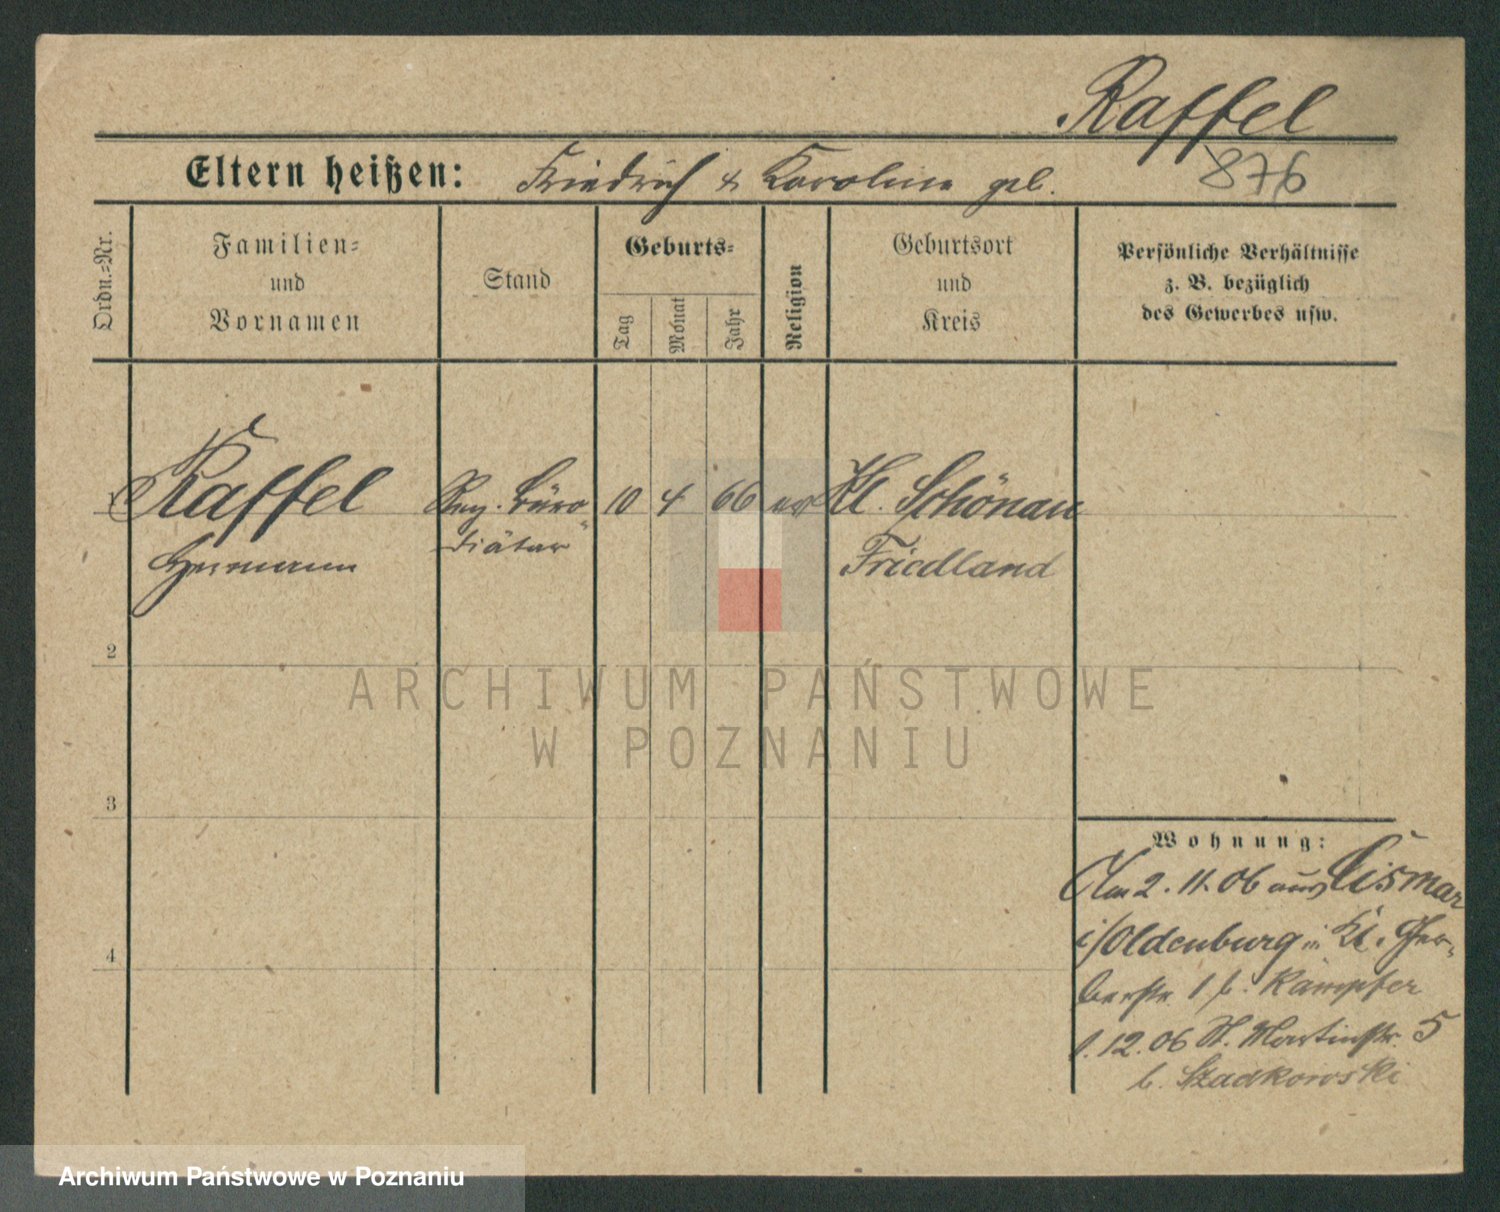 Raffel
Eltern heißen: Friedrich & Karoline geb.
876
Ordn.=Nr.
Familien=
und
Vornamen
Stand
Geburts=
Tag
Monat
Jahr
Religion
Geburtsort
und
Kreis
Persönliche Verhältnisse
z. B. bezüglich
des Gewerbes usw.
1 Raffel Reg. Büro 10 4 66 ev Kl. Schönau
Hermann Diätar Friedland
2
ARCHIWUM PAŃSTWOWE
W POZNANIU
3
4
Wohnung:
Am 2.11.06 aus Cismar
i/Oldenburg in Kl. Ger-
berstr. 1 b. Kämpfer
1.12.06 St. Martinstr. 5
b. Szadkowski
Archiwum Państwowe w Poznaniu